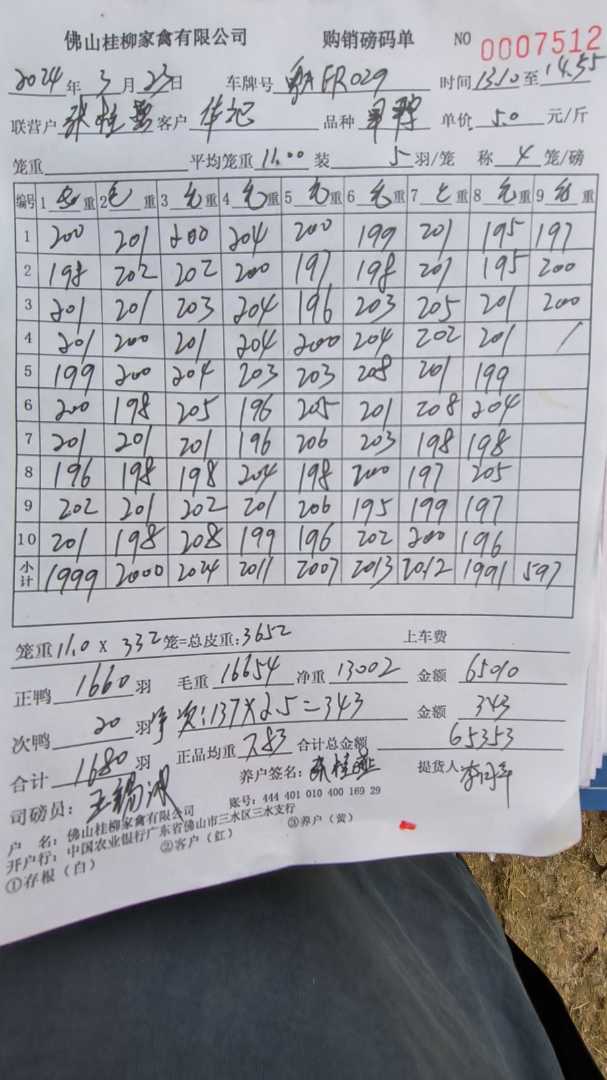 佛山桂柳家禽有限公司 购销磅码单 NO 0007512
2024年3月23日 车牌号 FR029 时间 13.10 至 14.55
联营户 张桂 客户 华记 品种 单价 5.0 元/斤
笼重 平均笼重 11.00 装 5 羽/笼 称 4 笼/磅
编号 1 毛重 2 毛重 3 毛重 4 毛重 5 毛重 6 毛重 7 毛重 8 毛重 9 毛重
1 200 201 200 204 200 199 201 195 197
2 198 202 202 200 197 198 201 195 200
3 201 201 203 204 196 203 205 201 200
4 201 200 201 204 200 204 202 201 /
5 199 200 204 203 203 208 201 199
6 200 198 205 196 205 201 208 204
7 201 201 201 196 206 203 198 198
8 196 198 198 204 198 200 197 205
9 202 201 202 201 206 195 199 197
10 201 198 208 199 196 202 200 196
小计 1999 2000 2024 2011 2007 2013 2012 1991 597
笼重 11.0 x 332 笼=总皮重: 3652 上车费
正鸭 1660 羽 毛重 16654 净重 13002 金额 65010
次鸭 20 羽 次: 137 x 2.5 = 343 金额 343
合计 1680 羽 正品均重 7.83 合计总金额 65353
司磅员: 王锡 养户签名: 张桂 提货人:
户 名: 佛山桂柳家禽有限公司 账号: 444 401 010 400 169 29
开户行: 中国农业银行广东省佛山市三水区三水支行
①存根(白) ②客户(红) ③养户(黄)